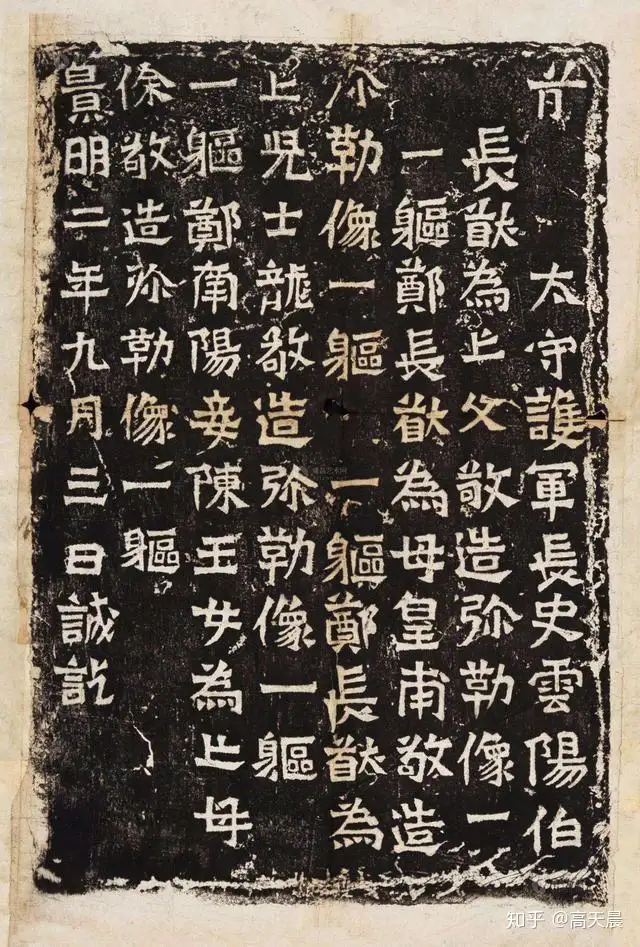 前 太守護軍長史雲陽伯
長猷為亡父敬造弥勒像一
一軀鄭長猷為母皇甫敬造
弥勒像一軀 一軀鄭長猷為
亡兒士龍敬造弥勒像一軀
一軀鄭南陽妾陳玉女為亡母
徐敬造弥勒像一軀
景明二年九月三日誡訖
知乎 @高天晨